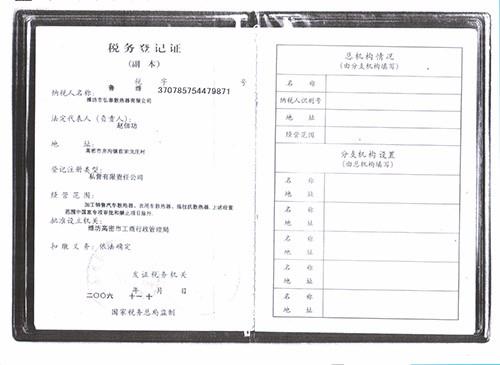 税务登记证
(副 本)
税 字 号
鲁 潍 370785754479871
纳税人名称:
潍坊市弘泰散热器有限公司
法定代表人(负责人):
赵加功
地 址:
登记注册类型:
私营有限责任公司
经营范围:
加工销售汽车散热器、农用车散热器、拖拉机散热器,上述经营
范围中国家专项审批和禁止项目除外。
批准设立机关:
潍坊高密市工商行政管理局
扣缴义务:依法确定
发证税务机关
二00六 年 十一 月 十 日
国家税务总局监制
总机构情况
(由分支机构填写)
名 称
纳税人识别号
地 址
经营范围
分支机构设置
(由总机构填写)
名 称
地 址
名 称
地 址
名 称
地 址
名 称
地 址
名 称
地 址